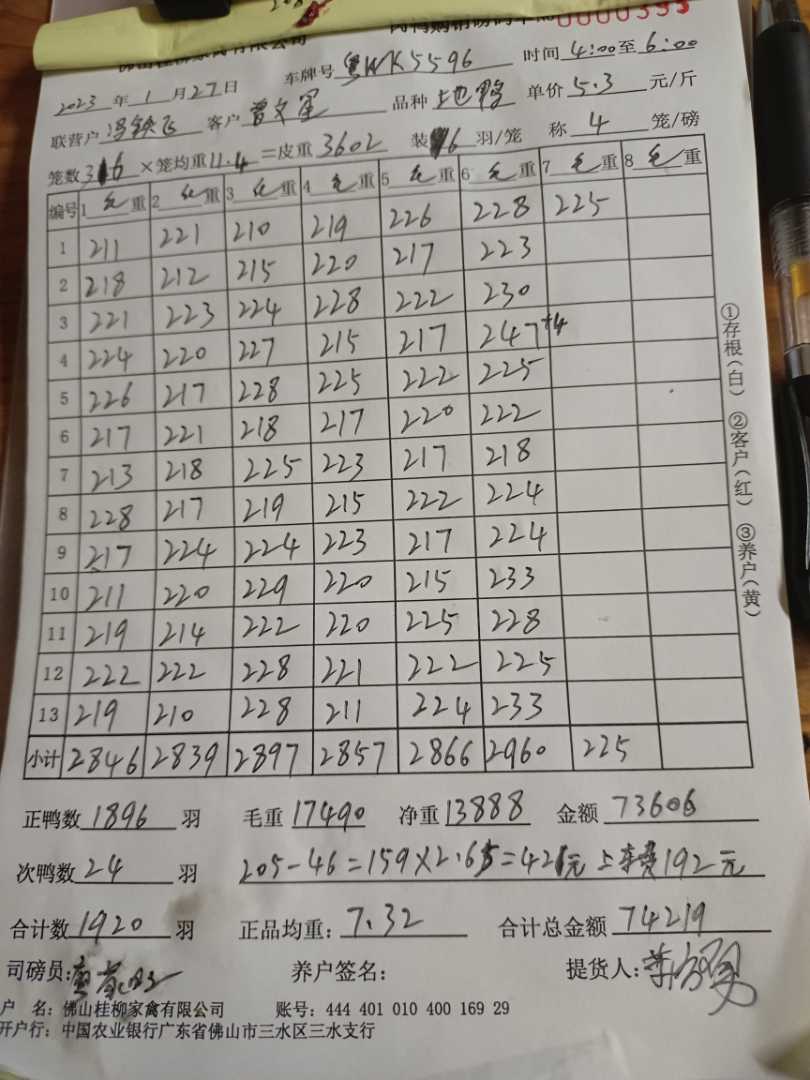 0000393
2023年1月27日 车牌号 粤WK5596 时间 4:00至6:00
联营户 冯铁飞 客户 曾文军 品种 土也鸭 单价 5.3 元/斤
笼数 316 ×笼均重 11.4 =皮重 3602 装 6 羽/笼 称 4 笼/磅
编号 1 毛重 2 毛重 3 毛重 4 毛重 5 毛重 6 毛重 7 毛重 8 毛重
1 211 221 210 219 226 228 225
2 218 212 215 220 217 223
3 221 223 224 228 222 230
4 224 220 227 215 217 247+4
5 226 217 228 225 222 225
6 217 221 218 217 220 222
7 213 218 225 223 217 218
8 228 217 219 215 222 224
9 217 224 224 223 217 224
10 211 220 229 220 215 233
11 219 214 222 220 225 228
12 222 222 228 221 222 225
13 219 210 228 211 224 233
小计 2846 2839 2897 2857 2866 2960 225
①存根(白) ②客户(红) ③养户(黄)
正鸭数 1896 羽 毛重 17490 净重 13888 金额 73606
次鸭数 24 羽 205-46=159×2.65=421元 上车费192元
合计数 1920 羽 正品均重: 7.32 合计总金额 74219
司磅员: 养户签名: 提货人:
户 名: 佛山桂柳家禽有限公司 账号: 444 401 010 400 169 29
开户行: 中国农业银行广东省佛山市三水区三水支行